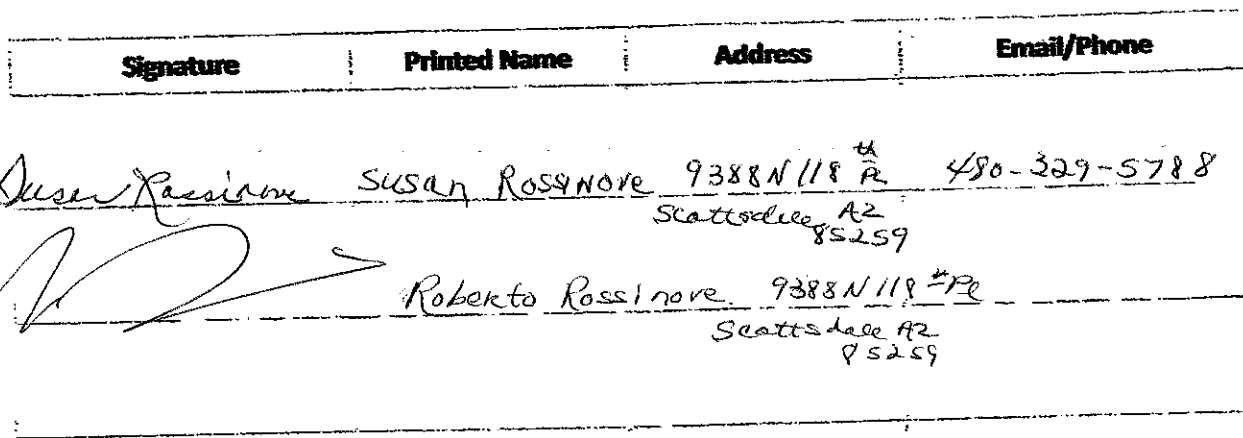 Signature Printed Name Address Email/Phone
Susan Rossinove Susan Rossinove 9388 N 118th Pl 480-329-5788
Scottsdale, AZ
85259
Roberto Rossinove 9388 N 118th Pl
Scottsdale AZ
85259